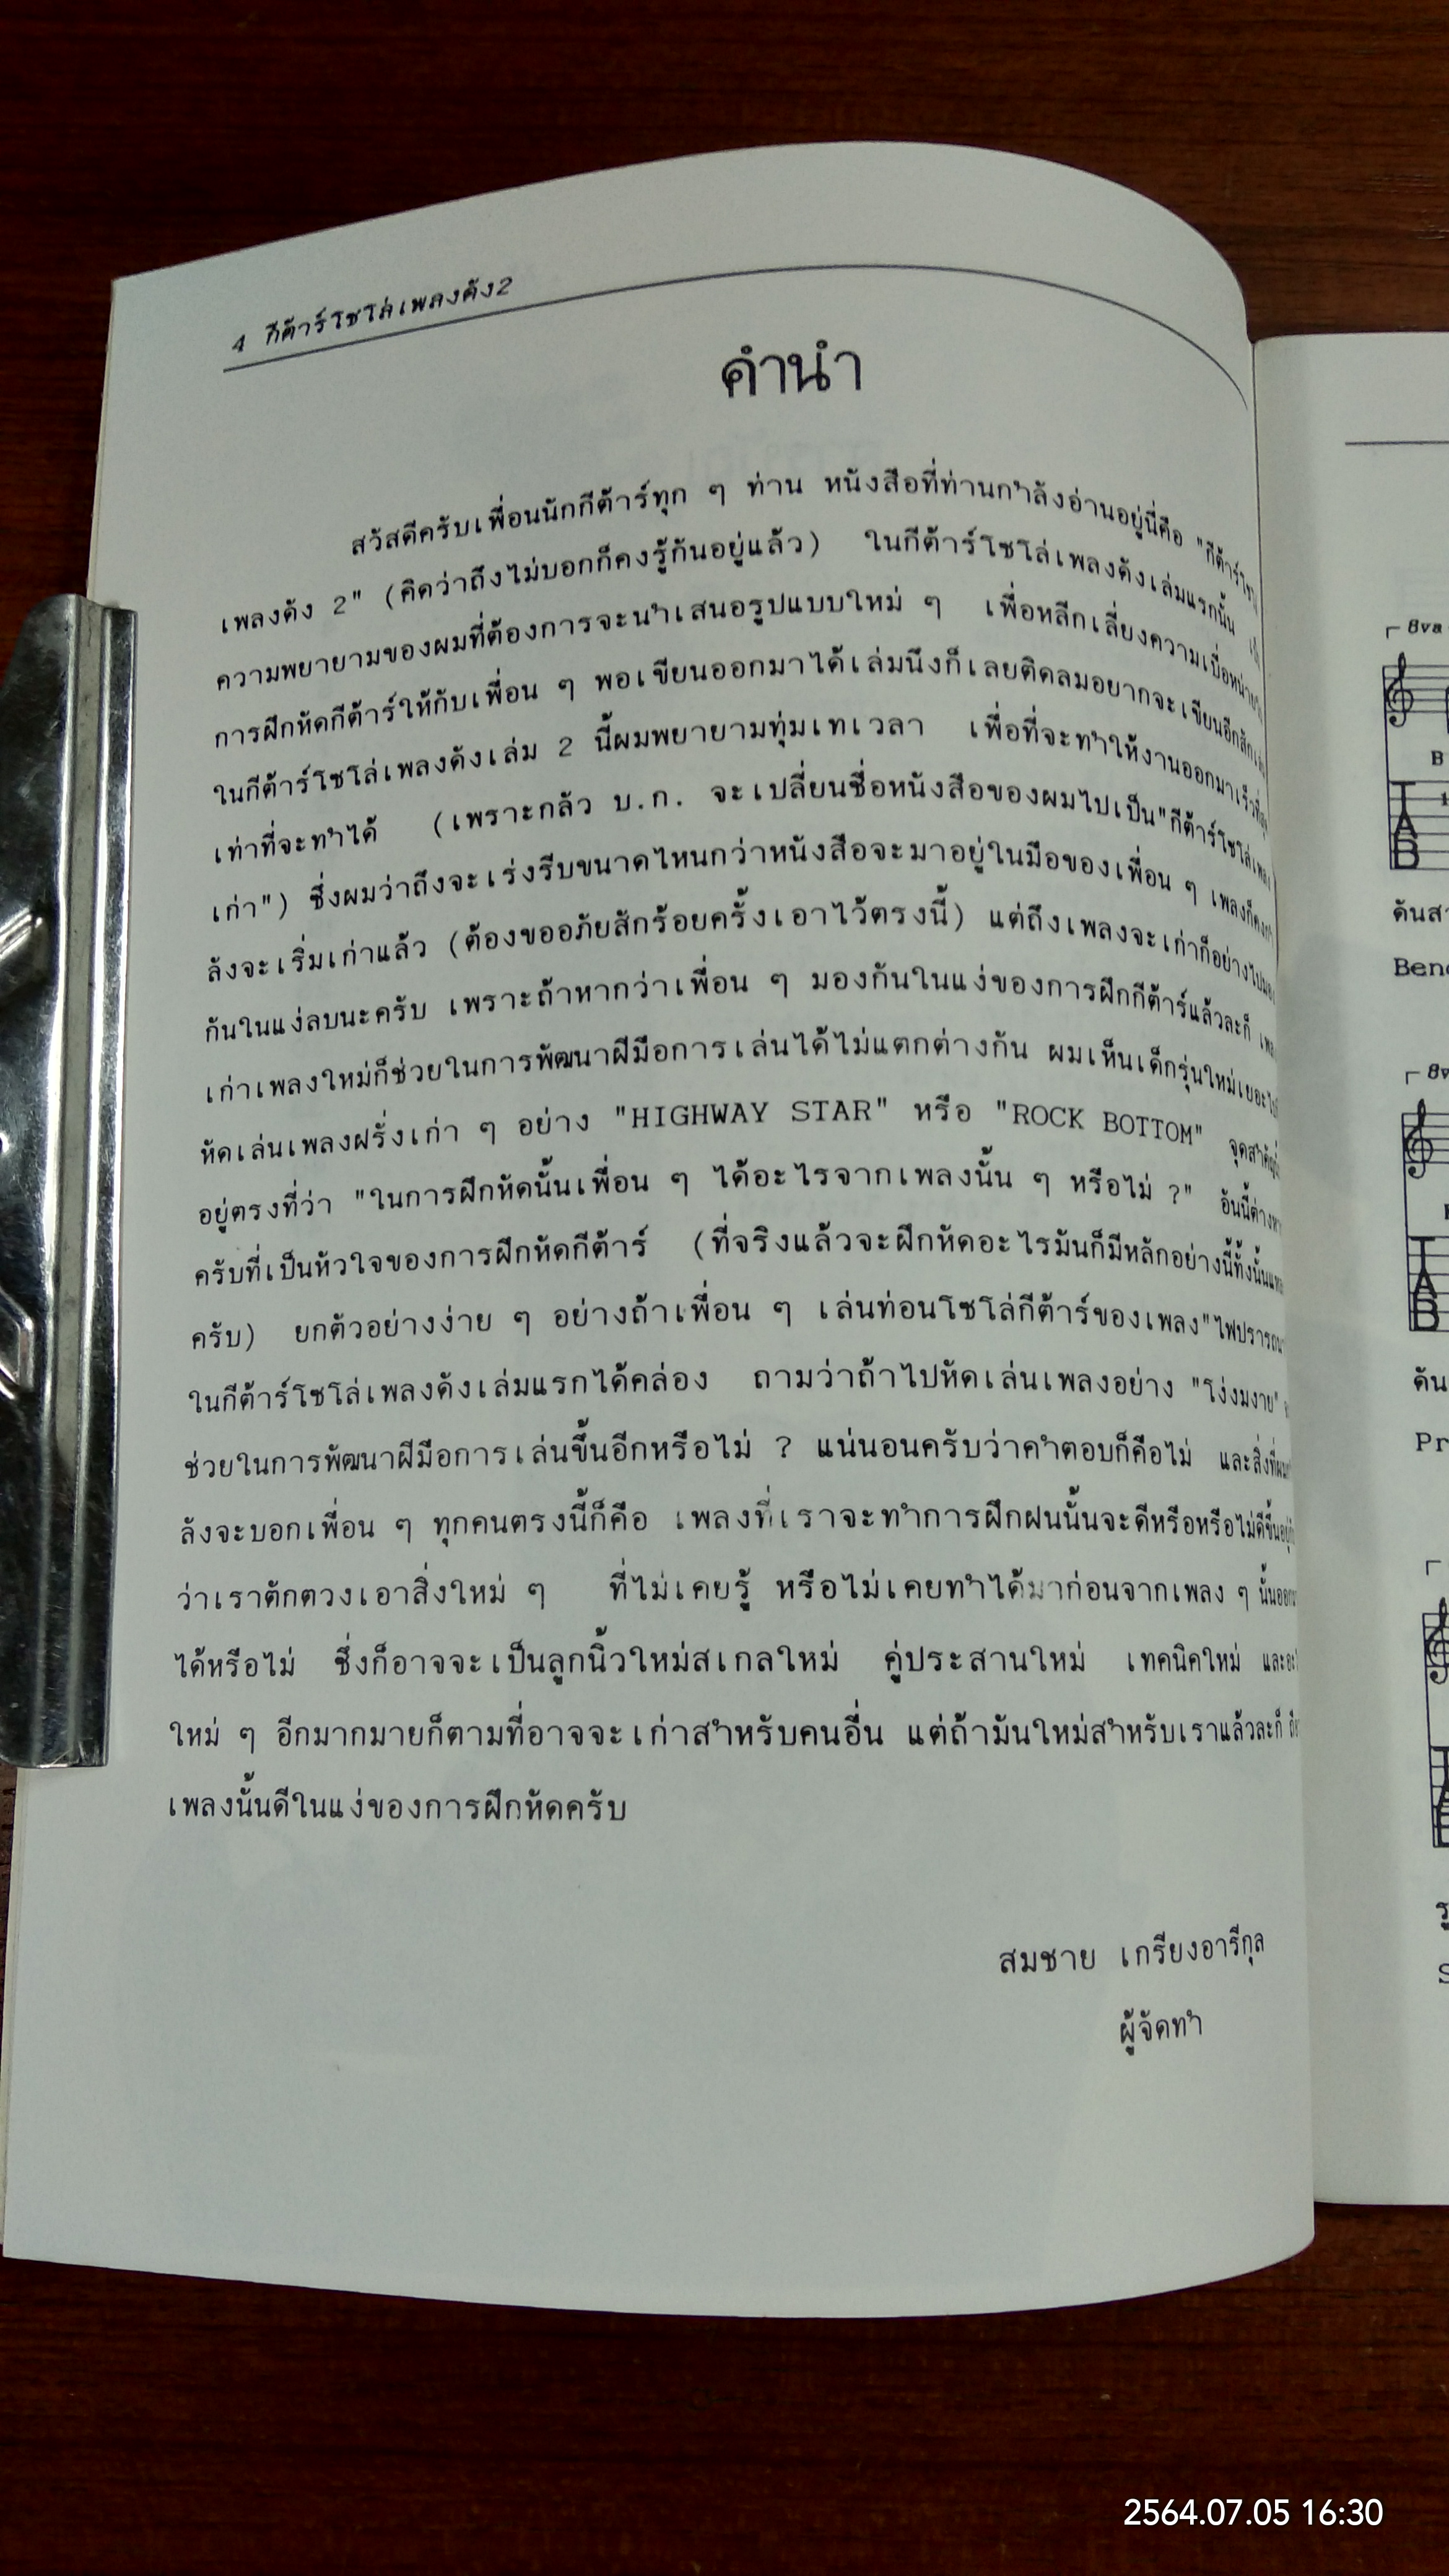 4 กีต้าร์โซโล่เพลงดัง2
คำนำ
สวัสดีครับเพื่อนนักกีต้าร์ทุก ๆ ท่าน หนังสือที่ท่านกำลังอ่านอยู่นี่คือ "กีต้าร์โซโล่
เพลงดัง 2" (คิดว่าถึงไม่บอกก็คงรู้กันอยู่แล้ว) ในกีต้าร์โซโล่เพลงดังเล่มแรกนั้น
ความพยายามของผมที่ต้องการจะนำเสนอรูปแบบใหม่ ๆ เพื่อหลีกเลี่ยงความเบื่อหน่าย
การฝึกหัดกีต้าร์ให้กับเพื่อน ๆ พอเขียนออกมาได้เล่มนึงก็เลยติดลมอยากจะเขียนอีกสัก
ในกีต้าร์โซโล่เพลงดังเล่ม 2 นี้ผมพยายามทุ่มเทเวลา เพื่อที่จะทำให้งานออกมาเร็วที่สุด
เท่าที่จะทำได้ (เพราะกลัว บ.ก. จะเปลี่ยนชื่อหนังสือของผมไปเป็น"กีต้าร์โซโล่เพลง
เก่า") ซึ่งผมว่าถึงจะเร่งรีบขนาดไหนกว่าหนังสือจะมาอยู่ในมือของเพื่อน ๆ เพลงก็คงกำ
ลังจะเริ่มเก่าแล้ว (ต้องขออภัยสักร้อยครั้งเอาไว้ตรงนี้) แต่ถึงเพลงจะเก่าก็อย่าไปมอง
กันในแง่ลบนะครับ เพราะถ้าหากว่าเพื่อน ๆ มองกันในแง่ของการฝึกกีต้าร์แล้วละก็ เพลง
เก่าเพลงใหม่ก็ช่วยในการพัฒนาฝีมือการเล่นได้ไม่แตกต่างกัน ผมเห็นเด็กรุ่นใหม่เยอะไป
หัดเล่นเพลงฝรั่งเก่า ๆ อย่าง "HIGHWAY STAR" หรือ "ROCK BOTTOM" จุดสำคัญ
อยู่ตรงที่ว่า "ในการฝึกหัดนั้นเพื่อน ๆ ได้อะไรจากเพลงนั้น ๆ หรือไม่ ?" อันนี้ต่างหาก
ครับที่เป็นหัวใจของการฝึกหัดกีต้าร์ (ที่จริงแล้วจะฝึกหัดอะไรมันก็มีหลักอย่างนี้ทั้งนั้นแหละ
ครับ) ยกตัวอย่างง่าย ๆ อย่างถ้าเพื่อน ๆ เล่นท่อนโซโล่กีต้าร์ของเพลง"ไฟปรารถนา
ในกีต้าร์โซโล่เพลงดังเล่มแรกได้คล่อง ถามว่าถ้าไปหัดเล่นเพลงอย่าง "โง่งมงาย"
ช่วยในการพัฒนาฝีมือการเล่นขึ้นอีกหรือไม่ ? แน่นอนครับว่าคำตอบก็คือไม่ และสิ่งที่ผม
ลังจะบอกเพื่อน ๆ ทุกคนตรงนี้ก็คือ เพลงที่เราจะทำการฝึกฝนนั้นจะดีหรือหรือไม่ดีขึ้นอยู่
ว่าเราตักตวงเอาสิ่งใหม่ ๆ ที่ไม่เคยรู้ หรือไม่เคยทำได้มาก่อนจากเพลง ๆ นั้นออกมา
ได้หรือไม่ ซึ่งก็อาจจะเป็นลูกนิ้วใหม่สเกลใหม่ คู่ประสานใหม่ เทคนิคใหม่
ใหม่ ๆ อีกมากมายก็ตามที่อาจจะเก่าสำหรับคนอื่น แต่ถ้ามันใหม่สำหรับเราแล้วละก็
เพลงนั้นดีในแง่ของการฝึกหัดครับ
สมชาย เกรียงอารีกุล
ผู้จัดทำ
8va
B
TAB
ดันสา
8v
TAB
ดัน
Pr
2564.07.05 16:30